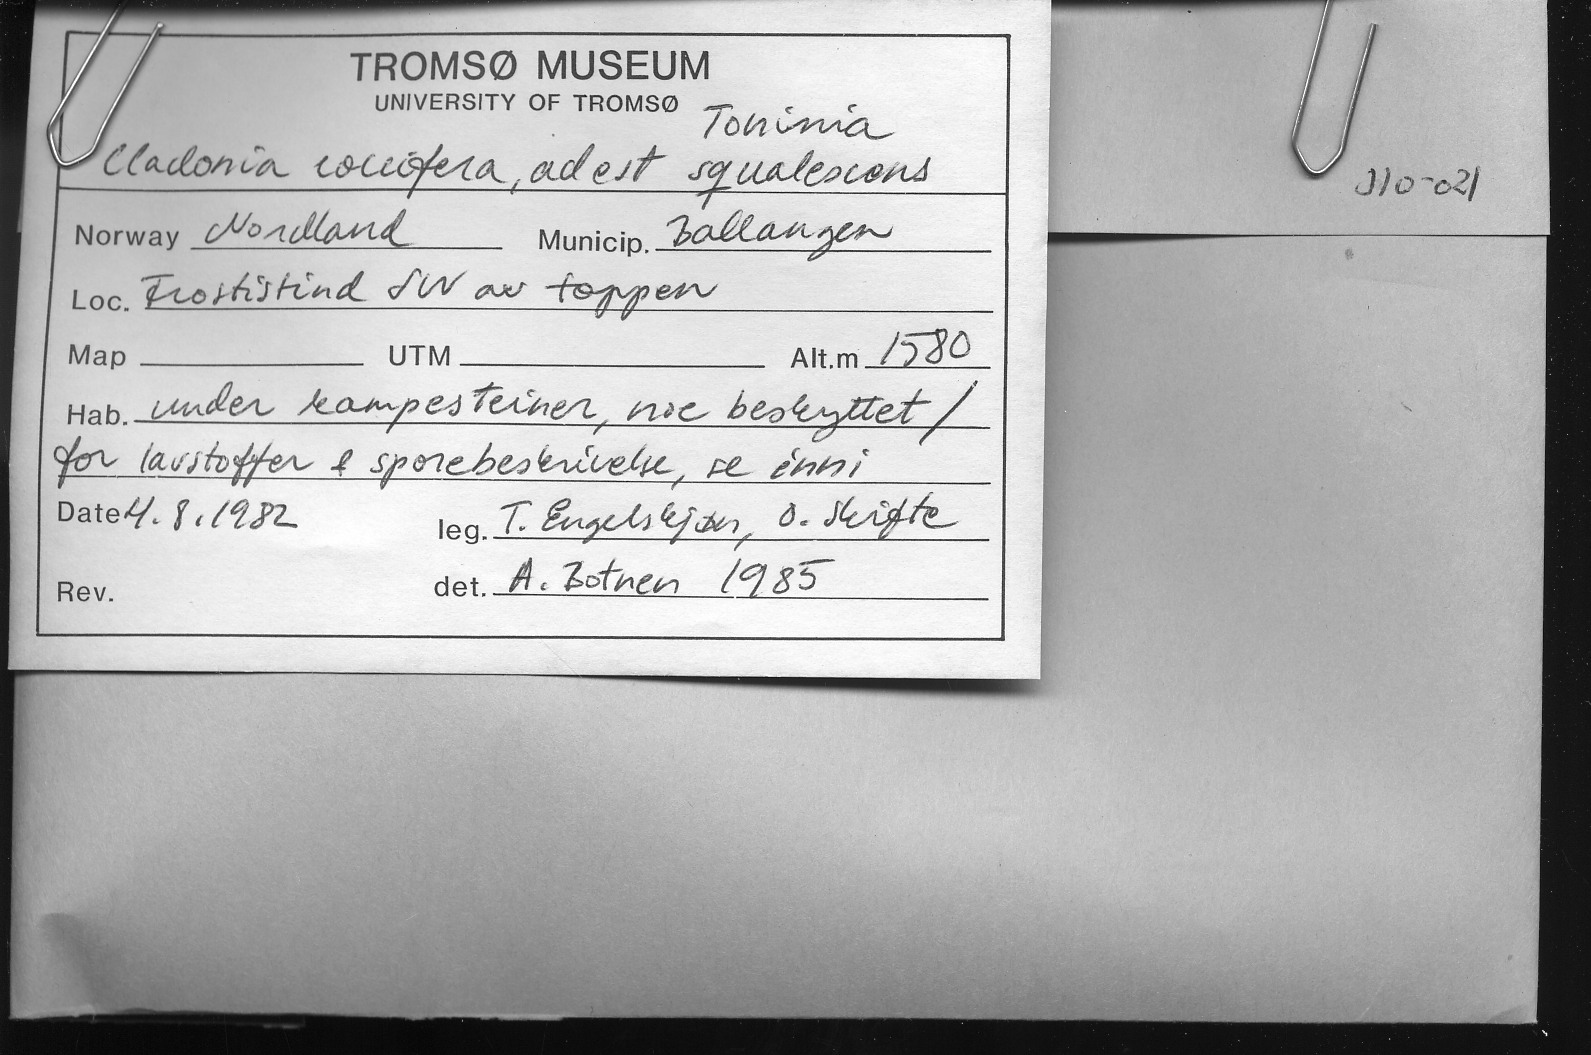 TROMSØ MUSEUM
UNIVERSITY OF TROMSØ
Toninia
Cladonia coccifera, adest squalescens
Norway Nordland Municip. Ballangen
Loc. Frostistind SW av toppen
Map UTM Alt.m 1580
Hab. under kampesteiner, noe beskyttet /
for lavstoffer & sporebeskrivelse, se inni
Date 4.8.1982 leg. T. Engelskjøn, O. Skifte
Rev. det. A. Botnen 1985
J10-021